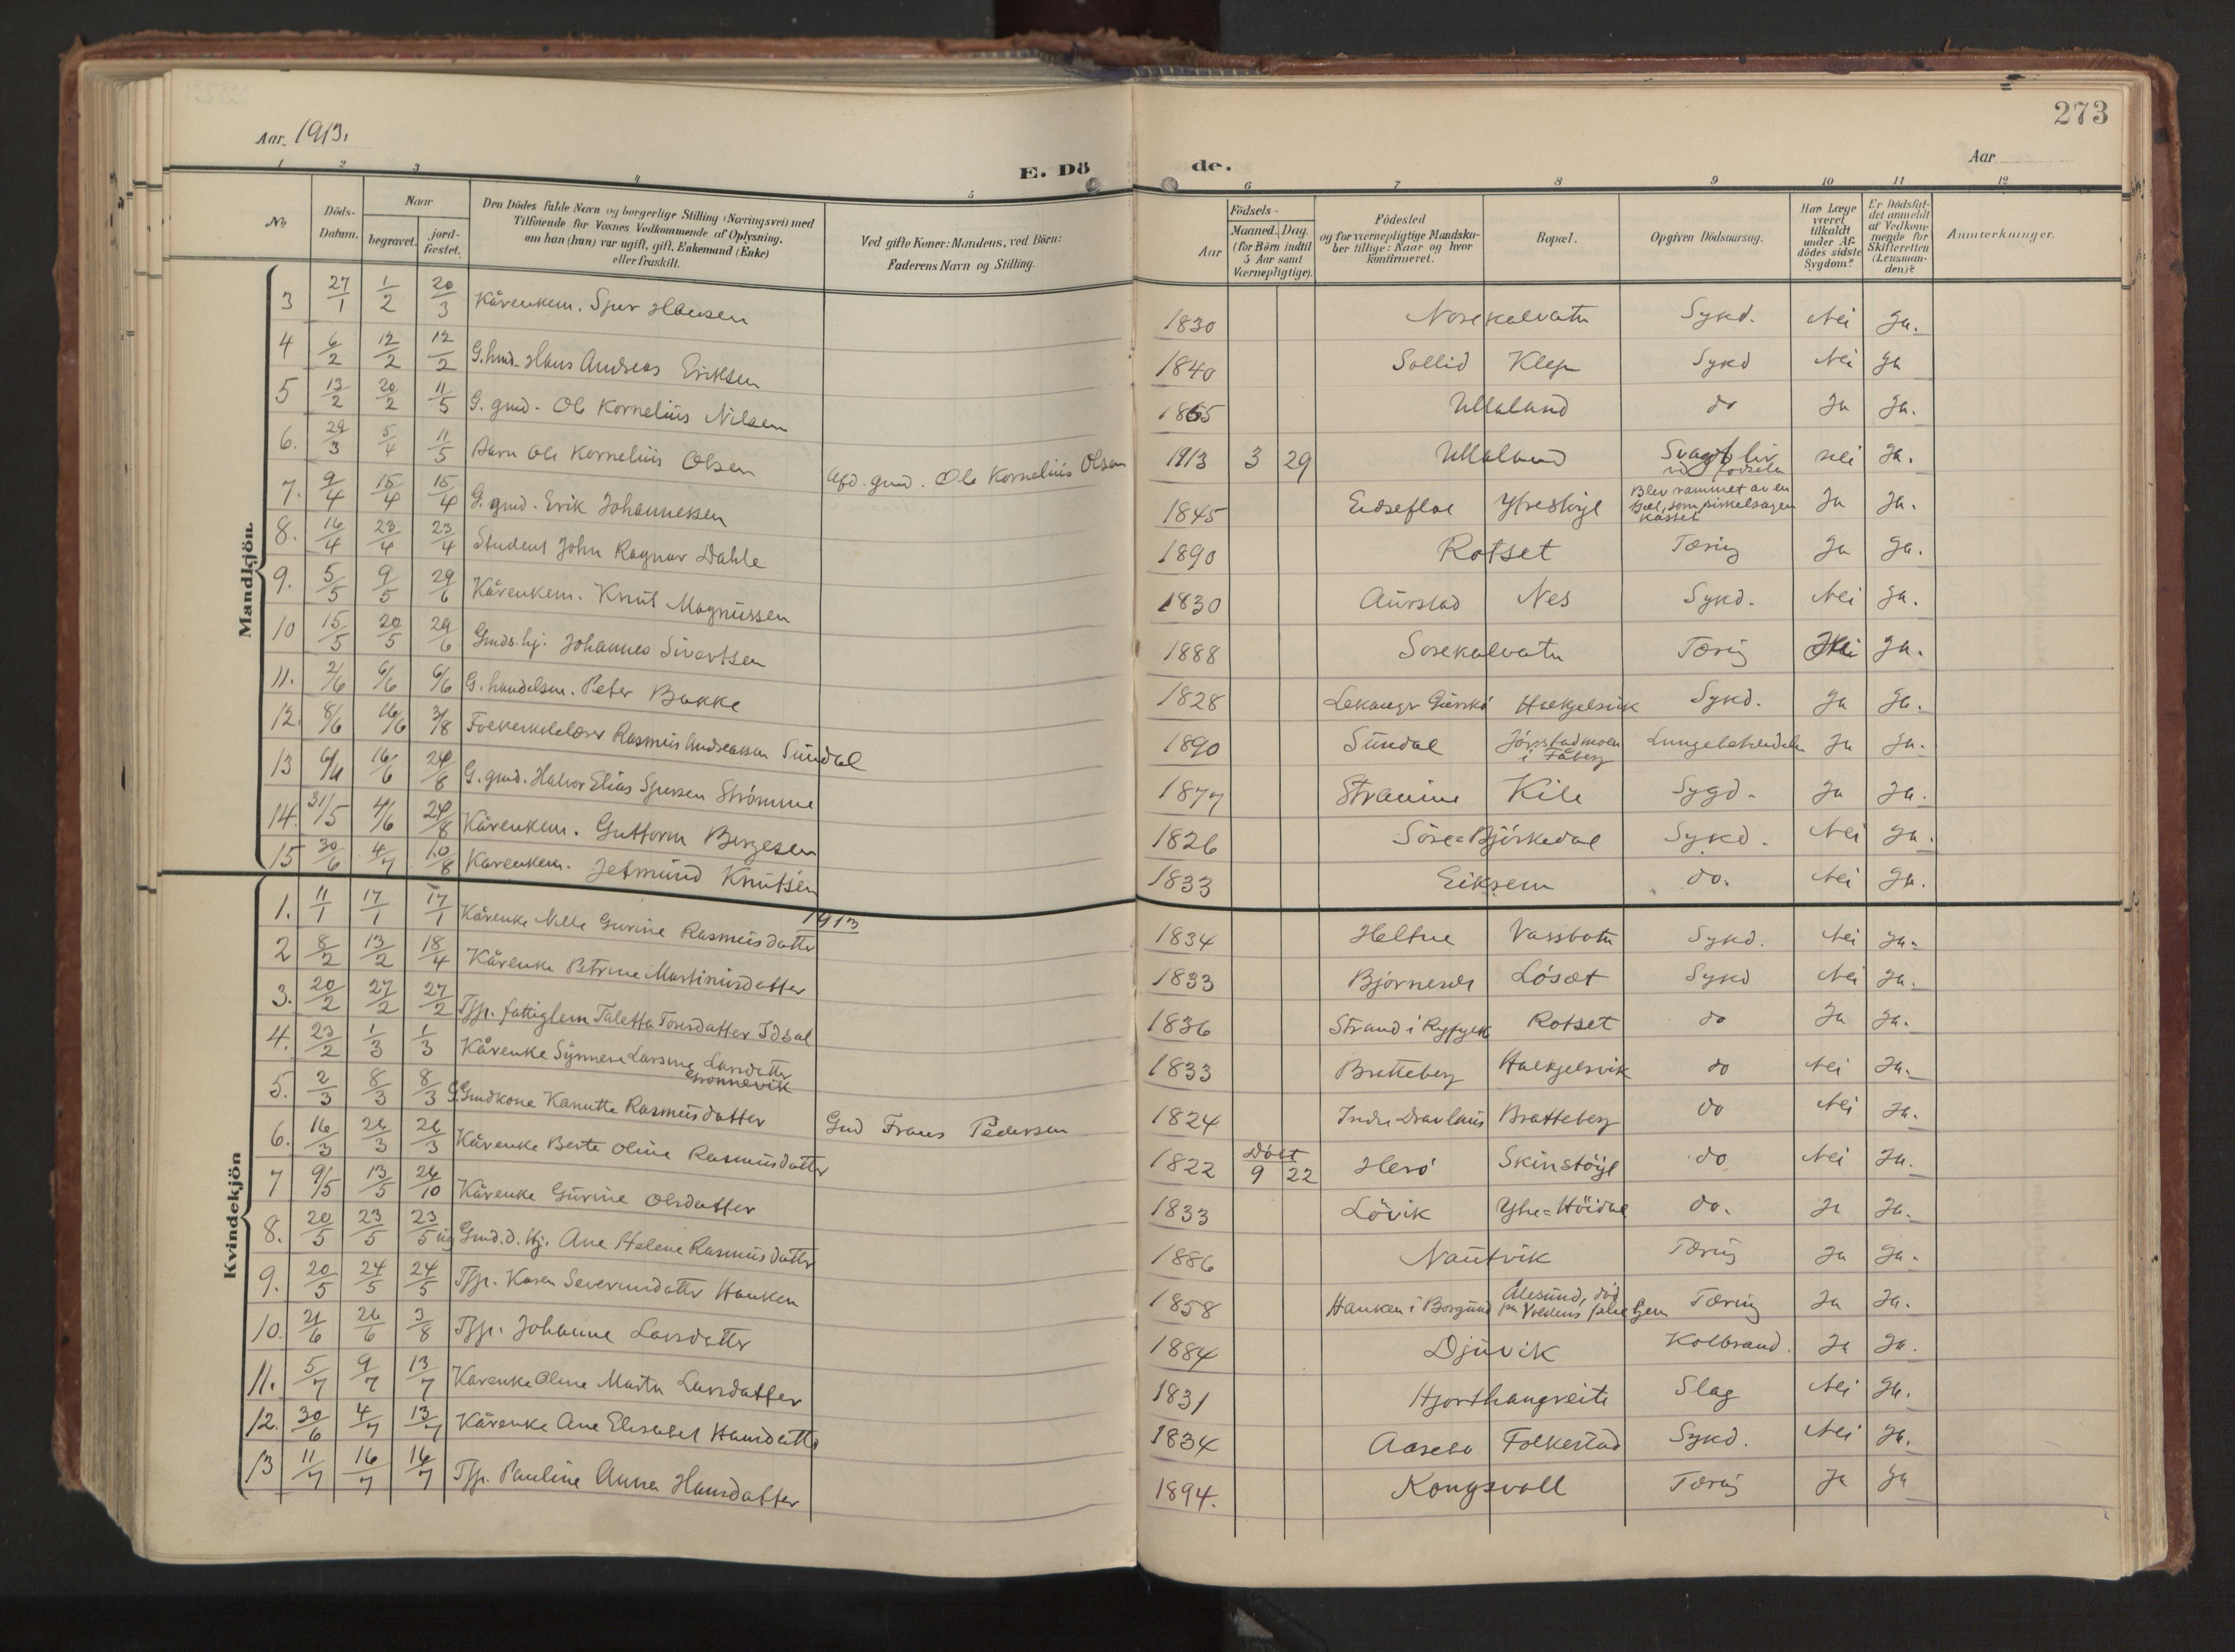 273
Aar 1913.
Aar
E. Dö de.
1 2 3 4 5 6 7 8 9 10 11 12
No
Döds-Datum.
Naar
begravet.
jord-fæstet.
Den Dödes fulde Navn og borgerlige Stilling (Næringsvei) med
Tilföiende for Voxnes Vedkommende af Oplysning,
om han (hun) var ugift, gift, Enkemand (Enke)
eller fraskilt.
Ved gifte Koner: Mandens, ved Börn:
Faderens Navn og Stilling.
Födsels-
Aar
Maaned. Dag.
(for Börn indtil
5 Aar samt
Værnepligtige).
Födested
og for værnepligtige Mandska-
ber tillige: Naar og hvor
konfirmeret.
Bopæl.
Opgiven Dödsaarsag.
Har Læge
været
tilkaldt
under Af-
dödes sidste
Sygdom?
Er Dödsfal-
det anmeldt
af Vedkom-
mende for
Skifteretten
(Lensman-
den)?
Anmerkninger.
Mandkjön
3 27/1 1/2 20/3 Kårenkem. Sjur Hansen 1830 Sykd. Nei Ja.
4 6/2 12/2 12/2 G.hmd. Hans Andreas Eriksen 1840 Sollid Klep Sykd Nei Ja
5 13/2 20/2 11/5 G. gmd. Ole Kornelius Nilsen 1865 Ullaland do Ja Ja.
6. 29/3 5/4 11/5 Barn Ole Kornelius Olsen Afd. gmd. Ole Kornelius Olsen 1913 3 29 Ullaland Svagt liv
ved fødselen nei Ja.
7. 9/4 15/4 15/4 G. gmd. Erik Johannessen 1845 Blev rammet av en
som sirkelsagen
kastet Ja Ja.
8. 16/4 23/4 23/4 Student John Ragnar Dahle 1890 Rotset Tæring Ja Ja.
9. 5/5 9/5 29/6 Kårenkem. Knut Magnussen 1830 Aurstad Nes Sykd. Nei Ja.
10 15/5 20/5 29/6 Gmds.hj. Johannes Sivertsen 1888 Tæring Nei Ja.
11. 2/6 6/6 6/6 G. handelsm. Peter Bakke 1828 Halkjelsvik Sykd. Ja Ja.
12. 8/6 16/6 3/8 Folkeskolelærer Rasmus Andreassen Sundal 1890 Sundal Jørstadmoen
i Fåberg Lungebetændelse Ja Ja.
13 6/11 16/6 24/8 G. gmd. Halvor Elias Sjursen Strömme 1877 Kile Sygd. Ja Ja.
14. 31/5 4/6 24/8 Kårenkem. Guttorm Bergesen 1826 Söre=Björkedal Sykd. Nei Ja.
15 30/6 4/7 10/8 Kårenkem. Jetmund Knutsen 1833 Eiksem do. Nei Ja.
1913
Kvindekjön
1. 11/1 17/1 17/1 Kårenke Nille Gurine Rasmusdatter 1834 Heltne Vassbotn Sykd. Nei Ja.
2 8/2 13/2 18/4 Kårenke Petrine Martinusdatter 1833 Bjørneset Løsæt Sykd Nei Ja.
3. 20/2 27/2 27/2 Tjp. fattiglem Taletta Toresdatter Idsal 1836 Strand i Ryfylke Rotset do Ja Ja.
4. 23/2 1/3 1/3 Kårenke Synneve Larsine Larsdatter
Grønnevik 1833 Bratteberg Halkjelsvik do Nei Ja.
5. 2/3 8/3 8/3 G. Gmdkone Kanutte Rasmusdatter Gmd Frans Pedersen 1824 Indre Dravlaus Bratteberg do Nei Ja.
6. 16/3 26/3 26/3 Kårenke Berte Oline Rasmusdatter 1822 Døbt
9 22 Herö Skinstöyl do Nei Ja.
7 9/5 13/5 26/10 Kårenke Gurine Olsdatter 1833 Lövik Ytre=Höidal do. Ja Ja.
8. 20/5 23/5 23/5 ug Gmd.d. Hj. Ane Helene Rasmusdatter 1886 Nautvik Tæring Ja Ja.
9. 20/5 24/5 24/5 Tjp. Karen Severinsdatter Hanken 1858 Hanken i Borgund Ålesund, död
paa Voldens pleiehjem Tæring Ja Ja.
10. 21/6 26/6 3/8 Tjp. Johanne Larsdatter 1884 Djuvik Kolbrand. Ja Ja.
11. 5/7 9/7 13/7 Kårenke Oline Marta Larsdatter 1831 Hjorthaugreite Slag Nei Ja.
12. 30/6 4/7 13/7 Kårenke Ane Elisabet Hansdatter 1834 Aasebø Folkestad Sykd. Nei Ja.
13 11/7 16/7 16/7 Tjp. Pauline Anna Hansdatter 1894. Kongsvoll Tæring Ja Ja